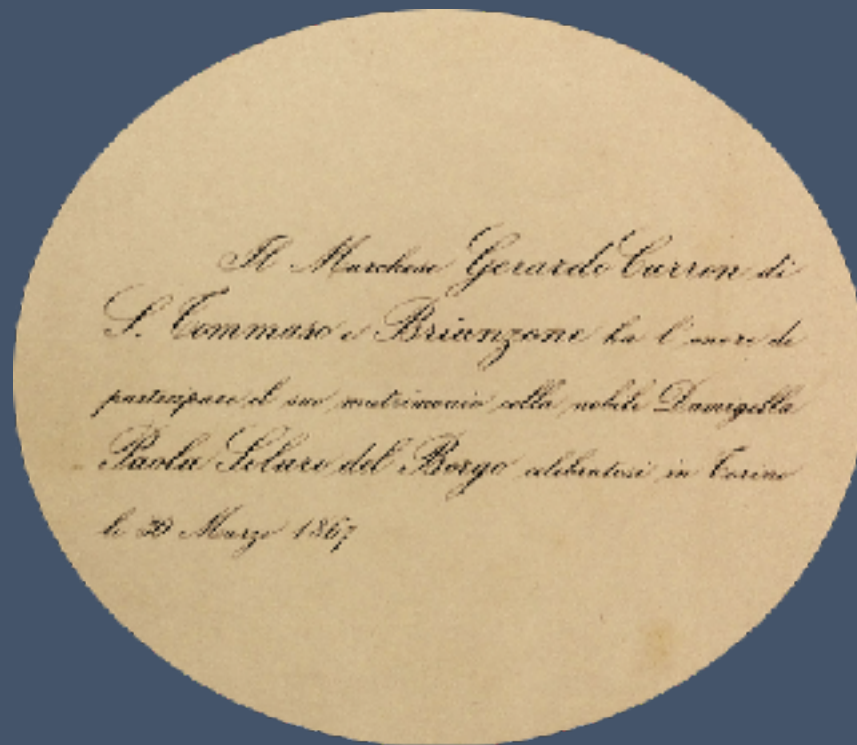 Il Marchese Gerardo Carron di
S. Tommaso e Brianzone ha l'onore di
partecipare il suo matrimonio colla nobile Damigella
Paola Solaro del Borgo celebratosi in Torino
li 20 Marzo 1867